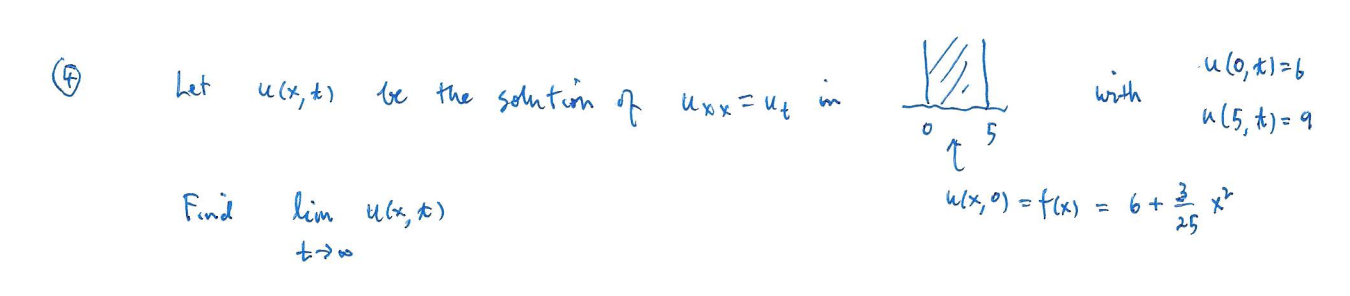 ④ Let u(x,t) be the solution of u_xx = u_t in
0 5
with u(0,t)=6
u(5,t)=9
↑
u(x,0) = f(x) = 6 + 3/25 x²
Find lim u(x,t)
t→∞